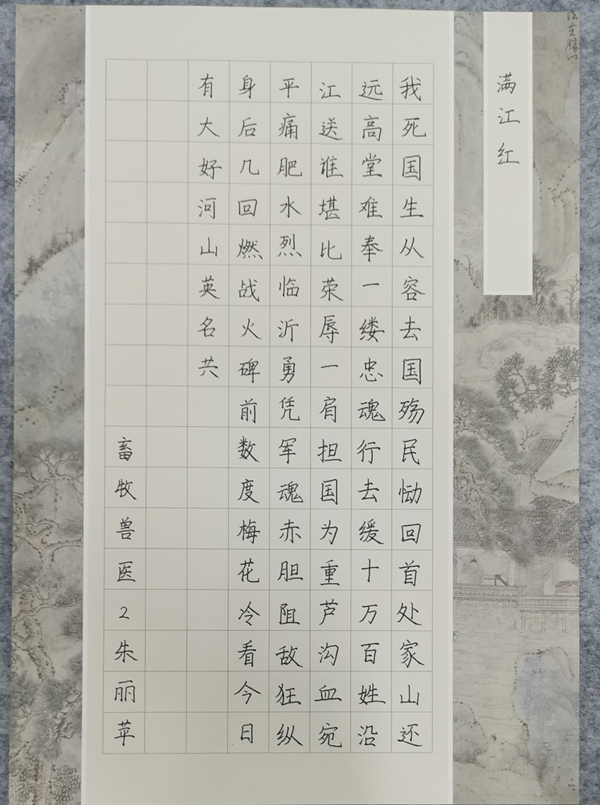 满江红
我死国生从容去国殇民恸回首处家山还
远高堂难奉一缕忠魂行去缓十万百姓沿
江送谁堪比荣辱一肩担国为重芦沟血宛
平痛肥水烈临沂勇凭军魂赤胆阻敌狂纵
身后几回燃战火碑前数度梅花冷看今日
有大好河山英名共
畜牧兽医2朱丽苹